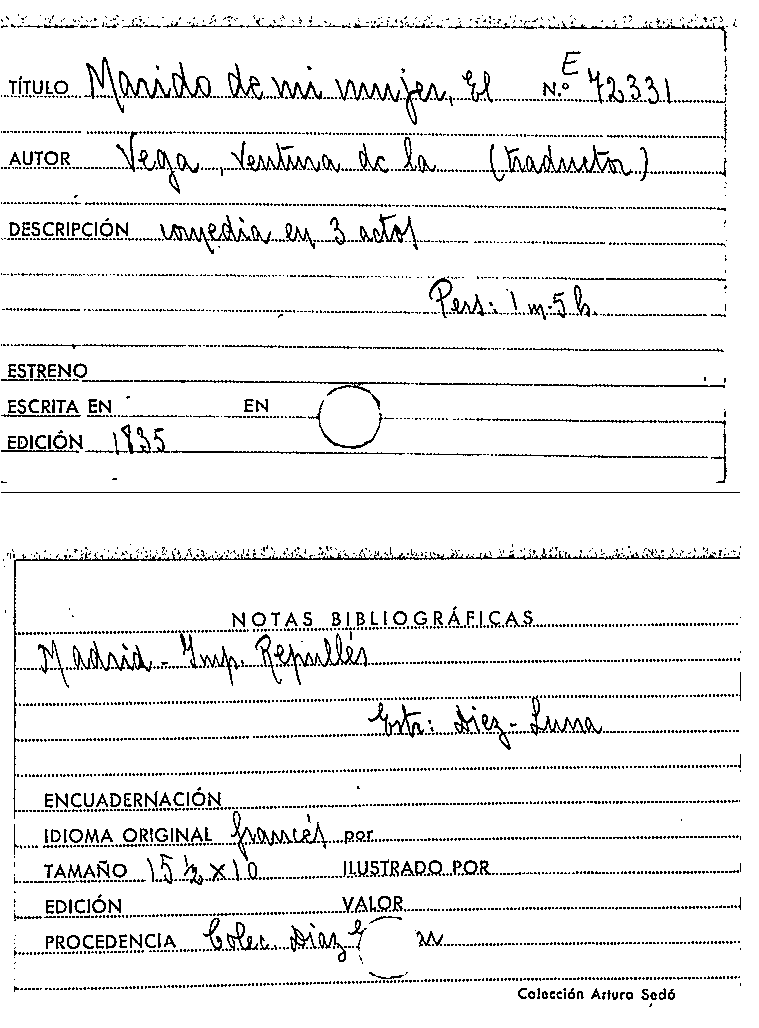 TÍTULO Marido de mi mujer, El N.º E 72331
AUTOR Vega, Ventura de la (traductor)
DESCRIPCIÓN comedia en 3 actos
Pers: 1 m-5 h.
ESTRENO
ESCRITA EN EN
EDICIÓN 1835
NOTAS BIBLIOGRÁFICAS
Madrid - Imp. Repullés
Estr: Diez - Luna
ENCUADERNACIÓN
IDIOMA ORIGINAL francés por
TAMAÑO 15 ½ x 10 ILUSTRADO POR
EDICIÓN VALOR
PROCEDENCIA Colec. Diaz
Colección Arturo Sedó